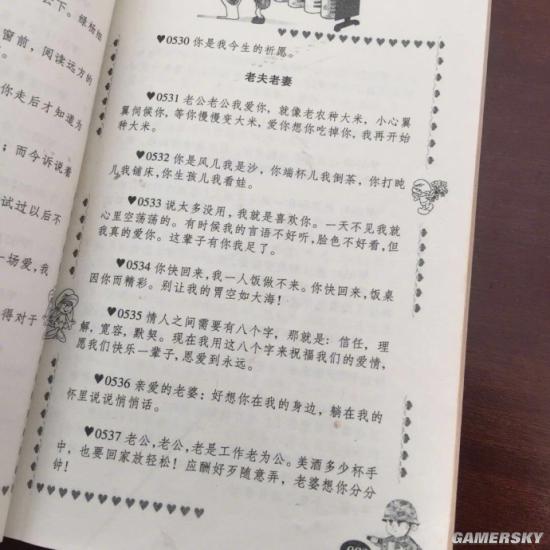 公下。绿杨拖
窗前，阅读远方的
你走后才知道为
；而今诉说着
试过以后不
一场爱，我
得对于
♥0530 你是我今生的祈愿。
老夫老妻
♥0531 老公老公我爱你，就像老农种大米，小心翼
翼伺候你，等你慢慢变大米，爱你想你吃掉你，我再开始
种大米。
♥0532 你是风儿我是沙，你端杯儿我倒茶，你打盹
儿我铺床，你生孩儿我看娃。
♥0533 说太多没用，我就是喜欢你。一天不见我就
心里空荡荡的。有时候我的言语不好听，脸色不好看，但
我真的爱你。这辈子有你我足了。
♥0534 你快回来，我一人饭做不来。你快回来，饭桌
因你而精彩。别让我的胃空如大海！
♥0535 情人之间需要有八个字，那就是：信任，理
解，宽容，默契。现在我用这八个字来祝福我们的爱情，
愿我们快乐一辈子，恩爱到永远。
♥0536 亲爱的老婆：好想你在我的身边，躺在我的
怀里说说悄悄话。
♥0537 老公，老公，老是工作老为公。美酒多少杯手
中，也要回家放轻松！应酬好歹随意弄，老婆想你分分
钟！
GAMERSKY